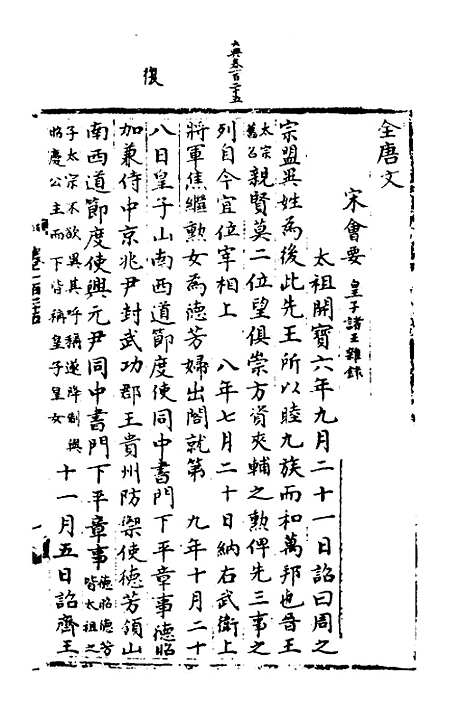 大典卷一百二十五
復
全唐文
宋會要 皇子諸王雜錄
太祖開寶六年九月二十一日詔曰周之
宗盟異姓為後此先王所以睦九族而和萬邦也吾王
太宗舊名親賢莫二位望俱崇方資夾輔之勲俾先三事之
列自今宜位宰相上 八年七月二十日納右武衛上
將軍焦繼勲女為德芳婦出閤就第 九年十月二十
八日皇子山南西道節度使同中書門下平章事德昭
加兼侍中京兆尹封武功郡王貴州防禦使德芳領山
南西道節度使興元尹同中書門下平章事德昭德芳皆太祖之
子太宗不欲異其呼稱遂降制與
昭慶公主而下皆稱皇子皇女 十一月五日詔齊王